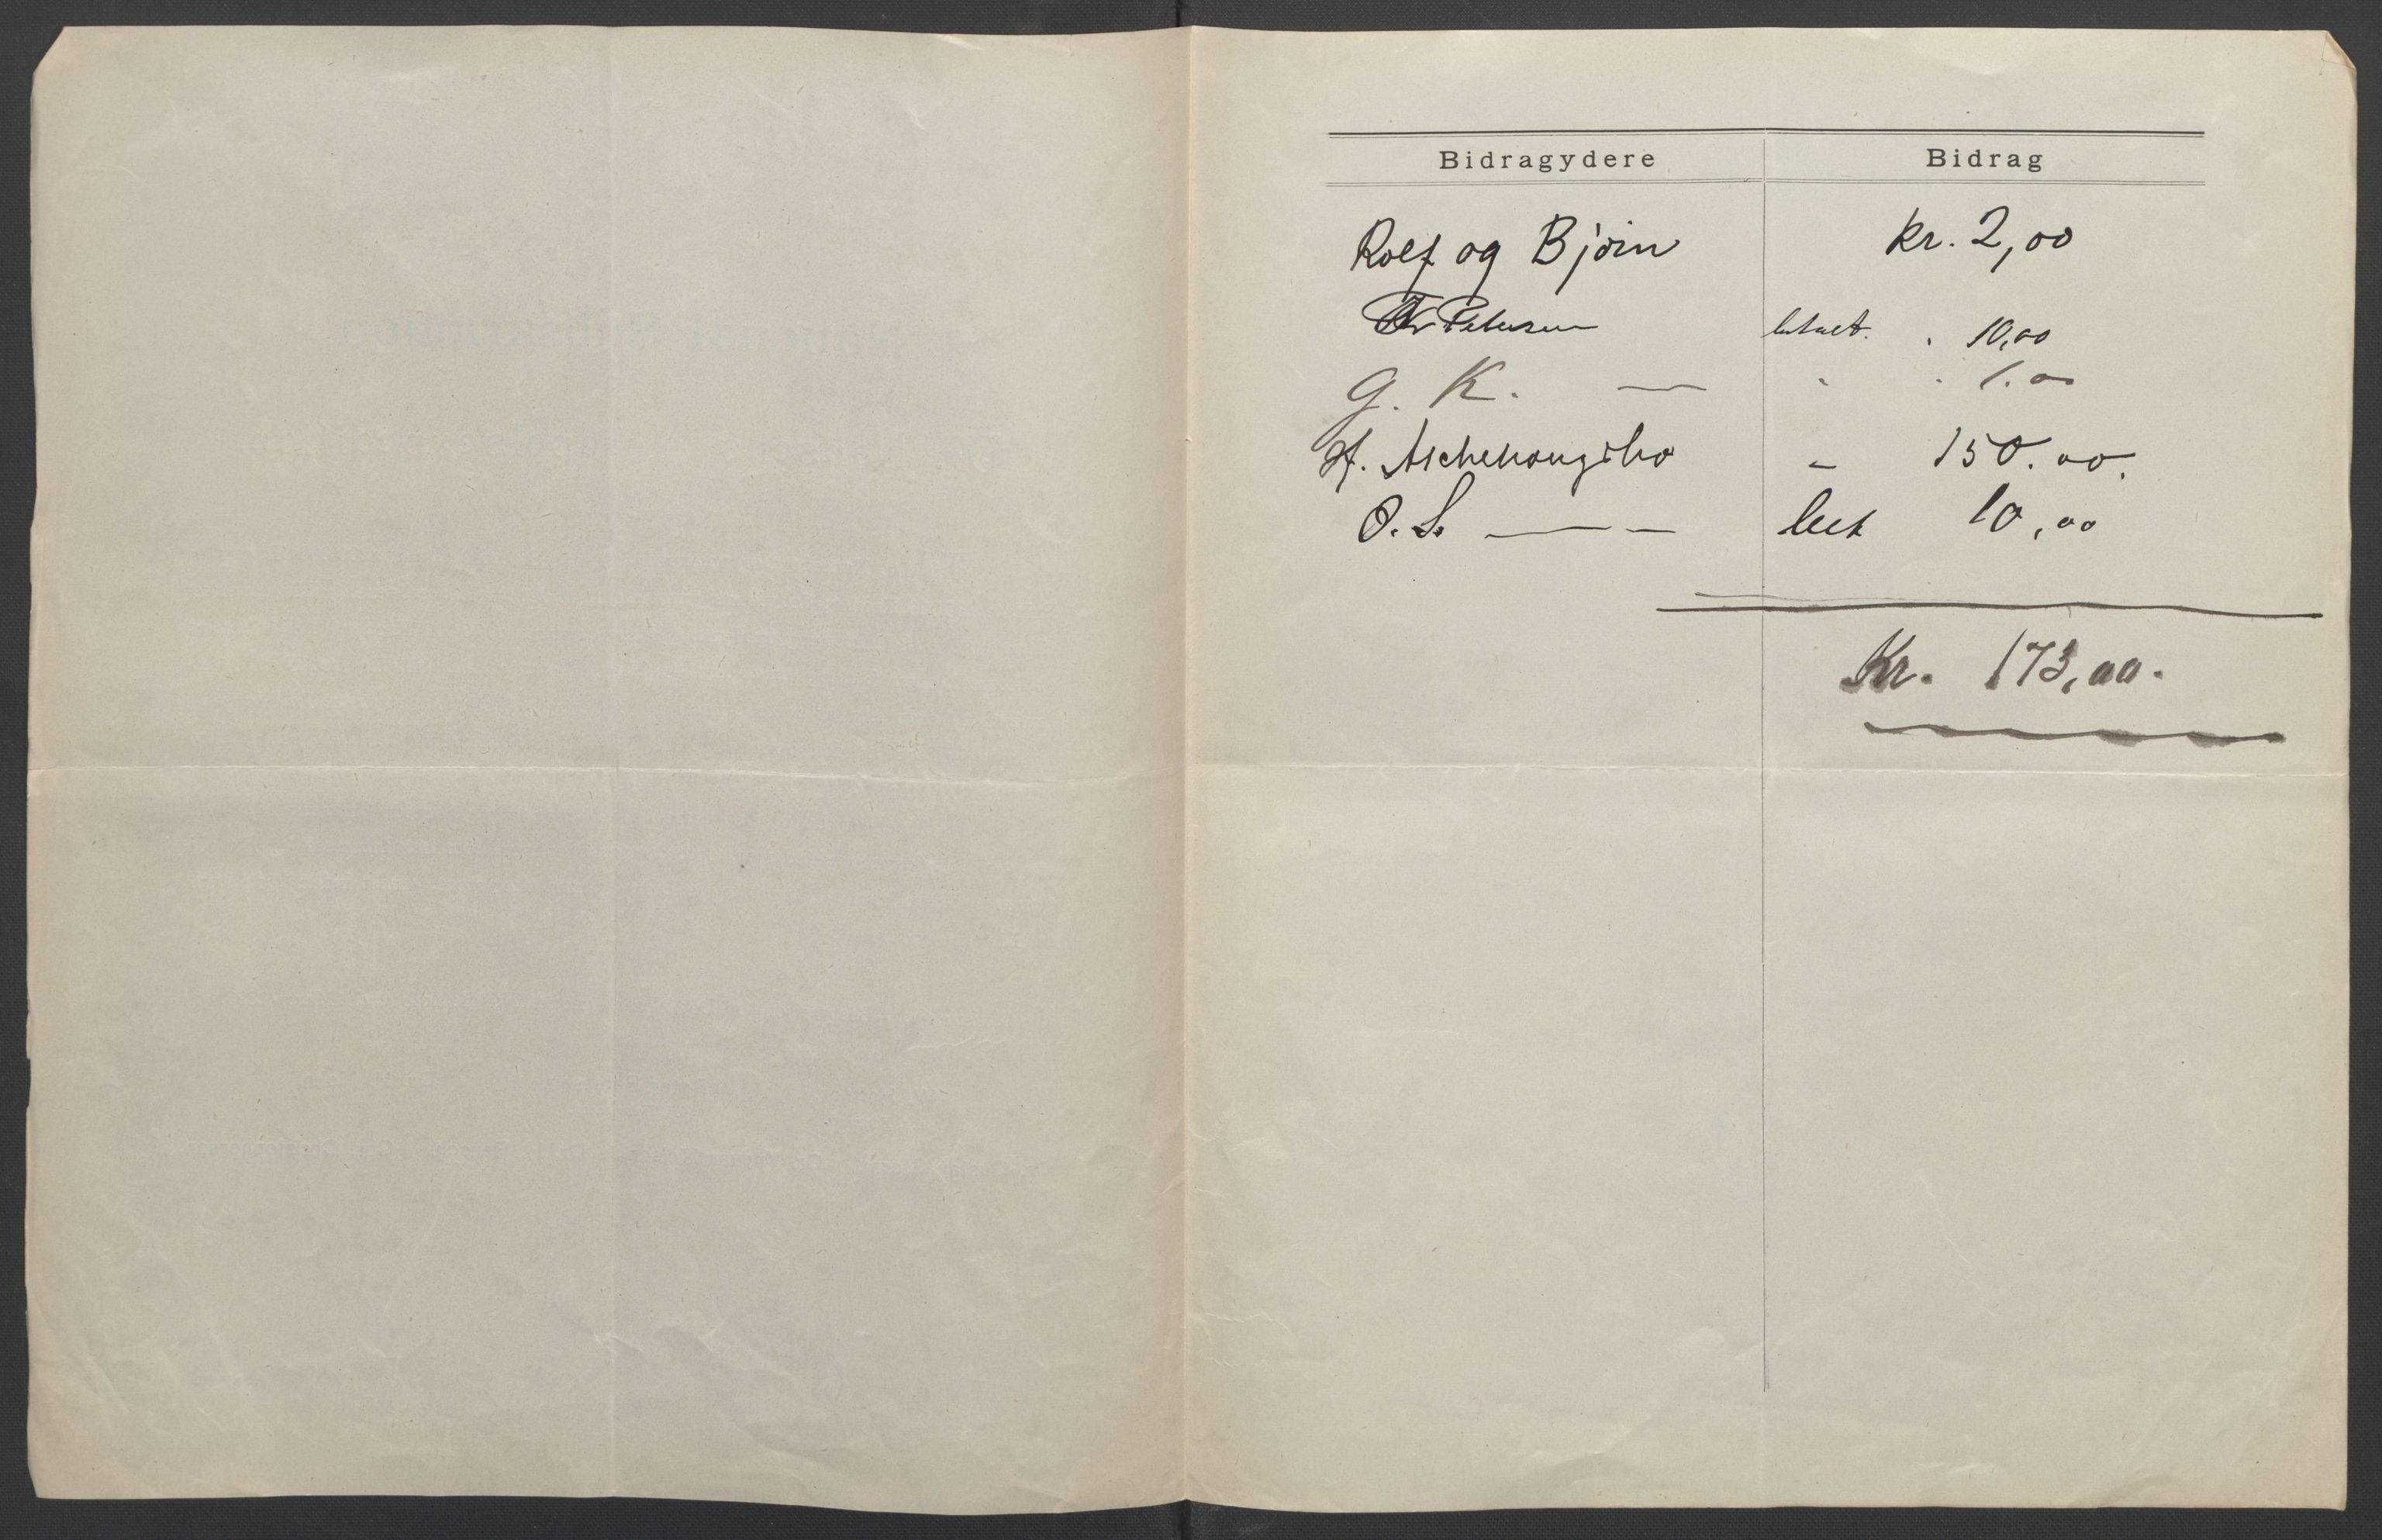 Bidragydere Bidrag
Rolf og Bjørn kr. 2,00
Petersen betalt. " 10,00
G. K. — " " 1.00
H. Aschehoug & Co – 150.00.
O. S. —— bet 10,00
Kr. 173,00.